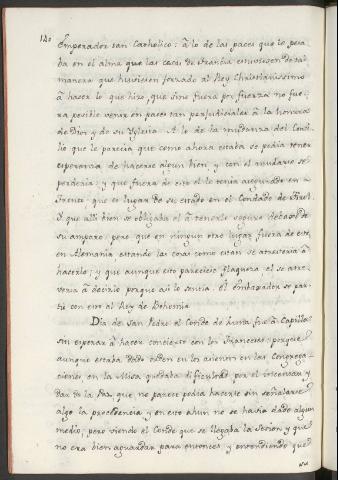 120
Emperador tan Catholico: à lo de las paces que le pesa
ba en el alma que las cosas de Francia estuviesen de tal
manera que huviesen forzado al Rey Christianissimo
à hacer lo que hizo, que sino fuera por fuerza no fue
ra posible venir en paces tan perjudiciales à la honrra
de Dios y de su Yglesia. A lo de la mudanza del Conci
lio que le parecia que como ahora estaba se podia tener
esperanza de hacerse algun bien, y con el mudarse se
perderia; y que fuera de esto el le tenia asegurado en
Trento, que es lugar de su estado en el Condado de Tirol
y que alli bien se obligaba el à tenerle seguro debajo de
su amparo; pero que en ningun otro lugar fuera de este
en Alemania estando las cosas como estan se atreveria à
hacerlo; y que aunque esto pareciese flaqueza el se atre
veria à decirlo porque asi lo sentia. El Embajador se par
tio con esto al Rey de Bohemia
Dia de San Pedro el Conde de Luna fue à Capilla
sin esperar à hacer concierto con los Franceses; porque
aunque estaba dado orden en los asientos en las Congrega
ciones en la Misa quedaba dificultad por el incensar y
dar de la Paz, que no parece podia hacerse sin señalarse
algo la precedencia y en esto ahun no se havia dado algun
medio; pero viendo el Conde que se llegaba la Sesion, y que
no era bien aguardar para entonces, y entendiendo que